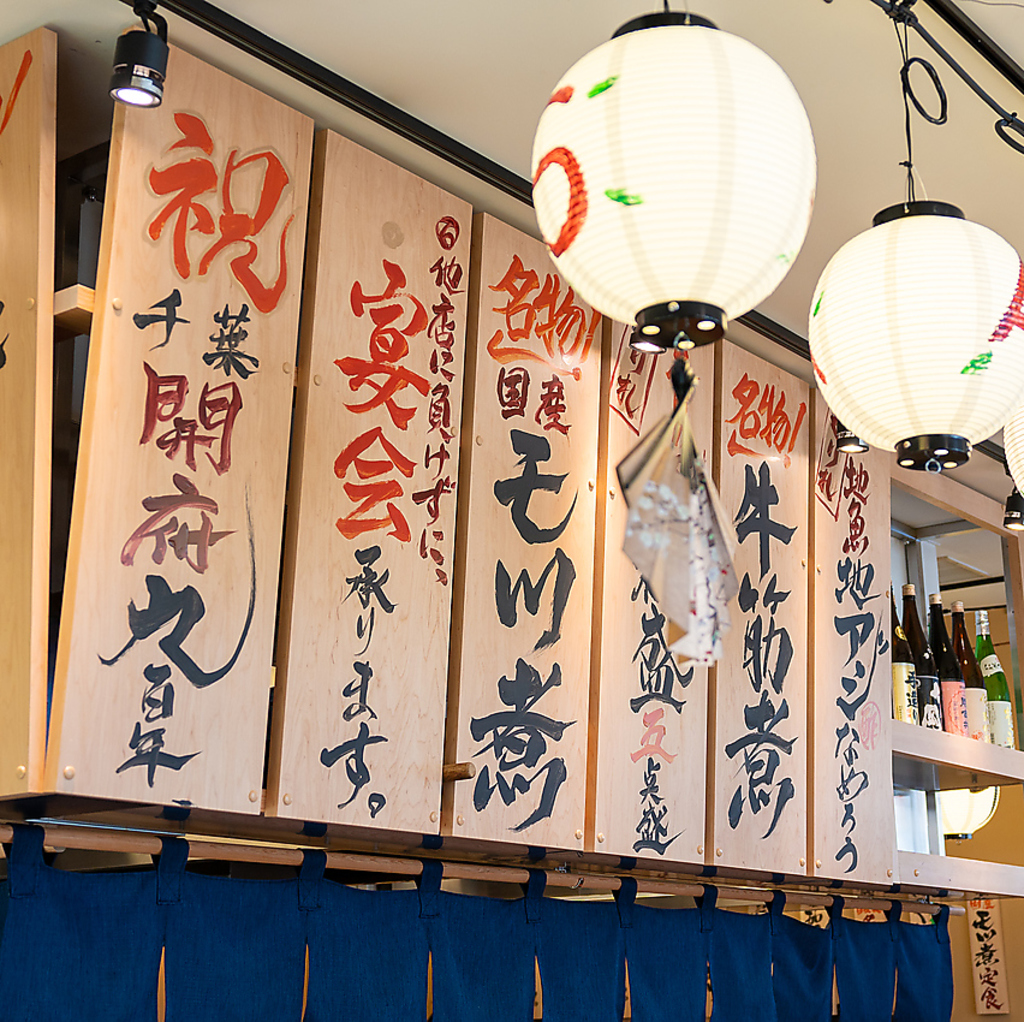 祝
千葉
開府
九百年
他店に負けずに、
宴会
承ります。
名物!
国産
モツ煮
盛
五点盛
名物!
牛筋煮
地魚
地アジなめろう
モツ煮定食